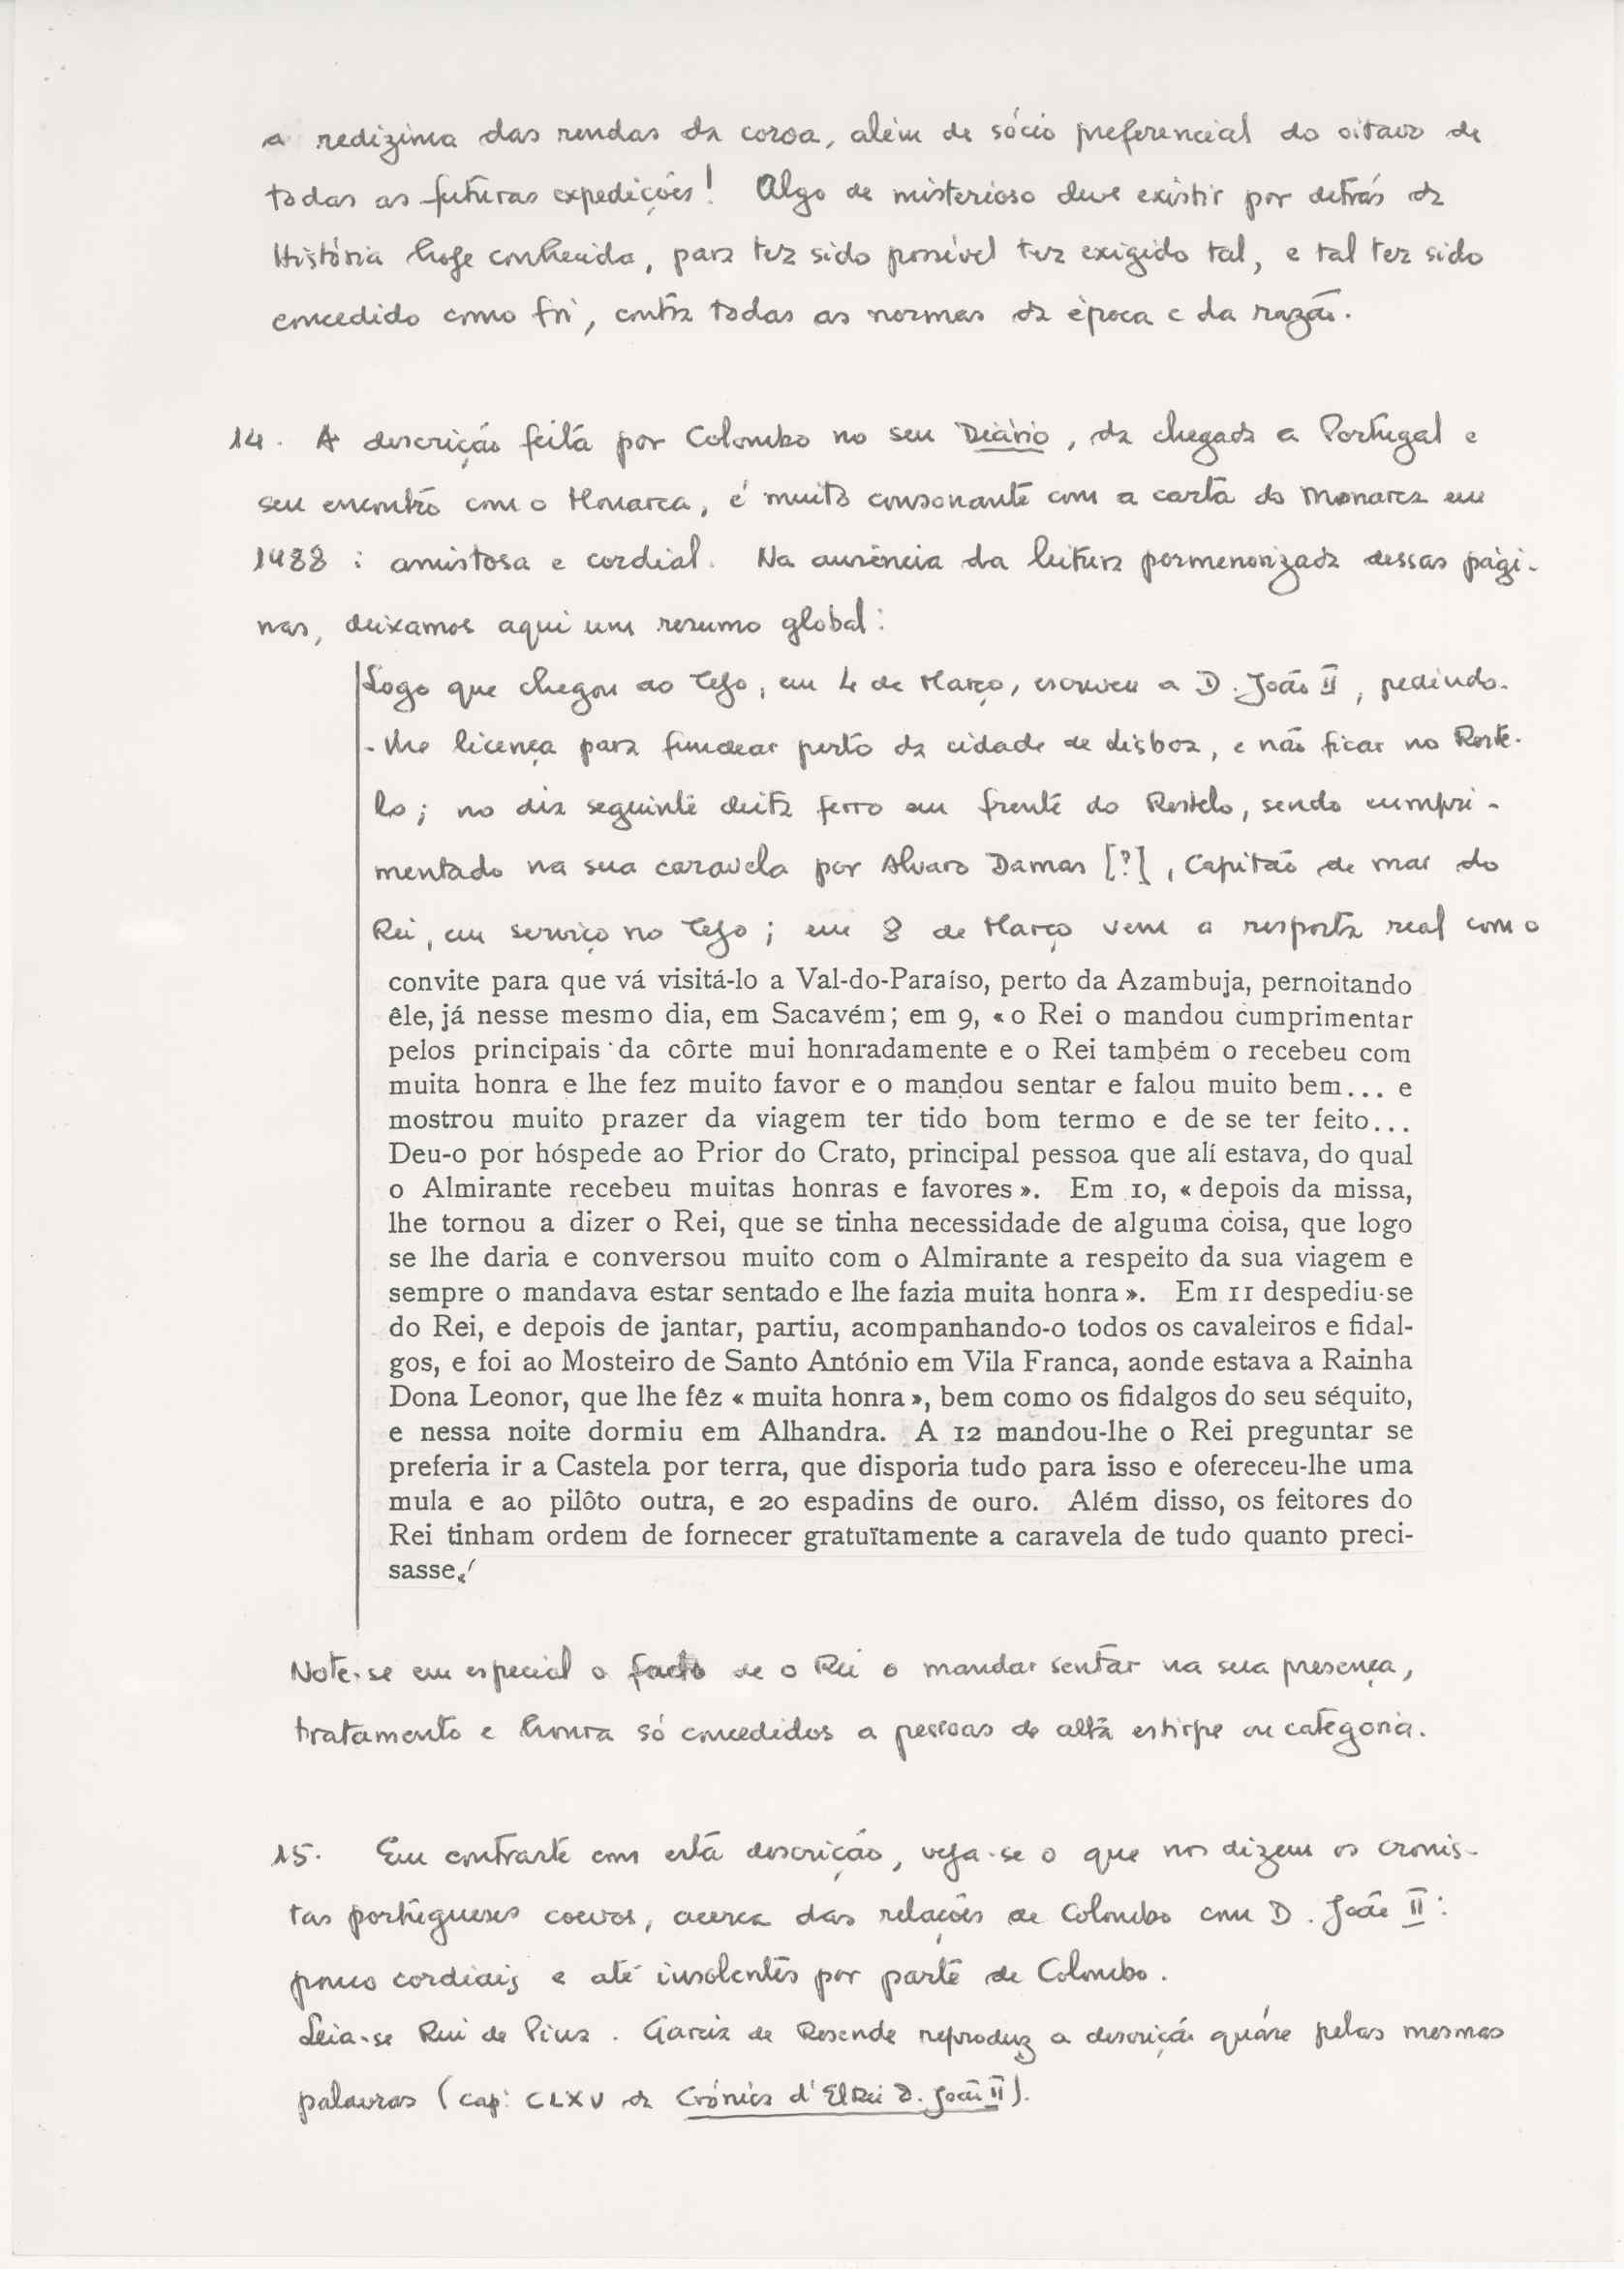 a redizima das rendas da coroa, além de sócio preferencial do oitavo de
todas as futuras expedições! Algo de misterioso deve existir por detrás da
História hoje conhecida, para ter sido possível ter exigido tal, e tal ter sido
concedido como foi, contra todas as normas da época e da razão.
14. A descrição feita por Colombo no seu Diário, da chegada a Portugal e
seu encontro com o Monarca, é muito consonante com a carta do Monarca em
1488: amistosa e cordial. Na ausência da leitura pormenorizada dessas pági-
nas, deixamos aqui um resumo global:
Logo que chegou ao Tejo, em 4 de Março, escreveu a D. João II, pedindo-
-lhe licença para fundear perto da cidade de Lisboa, e não ficar no Reste-
lo; no dia seguinte deita ferro em frente do Restelo, sendo cumpri-
mentado na sua caravela por Alvaro Damas [?], Capitão de mar do
Rei, em serviço no Tejo; em 8 de Março vem a resposta real com o
convite para que vá visitá-lo a Val-do-Paraíso, perto da Azambuja, pernoitando
êle, já nesse mesmo dia, em Sacavém; em 9, «o Rei o mandou cumprimentar
pelos principais da côrte mui honradamente e o Rei também o recebeu com
muita honra e lhe fez muito favor e o mandou sentar e falou muito bem... e
mostrou muito prazer da viagem ter tido bom termo e de se ter feito...
Deu-o por hóspede ao Prior do Crato, principal pessoa que alí estava, do qual
o Almirante recebeu muitas honras e favores». Em 10, «depois da missa,
lhe tornou a dizer o Rei, que se tinha necessidade de alguma coisa, que logo
se lhe daria e conversou muito com o Almirante a respeito da sua viagem e
sempre o mandava estar sentado e lhe fazia muita honra». Em 11 despediu-se
do Rei, e depois de jantar, partiu, acompanhando-o todos os cavaleiros e fidal-
gos, e foi ao Mosteiro de Santo António em Vila Franca, aonde estava a Rainha
Dona Leonor, que lhe fêz «muita honra», bem como os fidalgos do seu séquito,
e nessa noite dormiu em Alhandra. A 12 mandou-lhe o Rei preguntar se
preferia ir a Castela por terra, que disporia tudo para isso e ofereceu-lhe uma
mula e ao pilôto outra, e 20 espadins de ouro. Além disso, os feitores do
Rei tinham ordem de fornecer gratuïtamente a caravela de tudo quanto preci-
sasse.
Note-se em especial o facto de o Rei o mandar sentar na sua presença,
tratamento e honra só concedidos a pessoas de alta estirpe ou categoria.
15. Em contraste com esta descrição, veja-se o que nos dizem os cronis-
tas portugueses coevos, acerca das relações de Colombo com D. João II:
pouco cordiais e até insolentes por parte de Colombo.
Leia-se Rui de Pina. Garcia de Resende reproduz a descrição quáse pelas mesmas
palavras (cap. CLXV da Crónica d'ElRei D. João II).